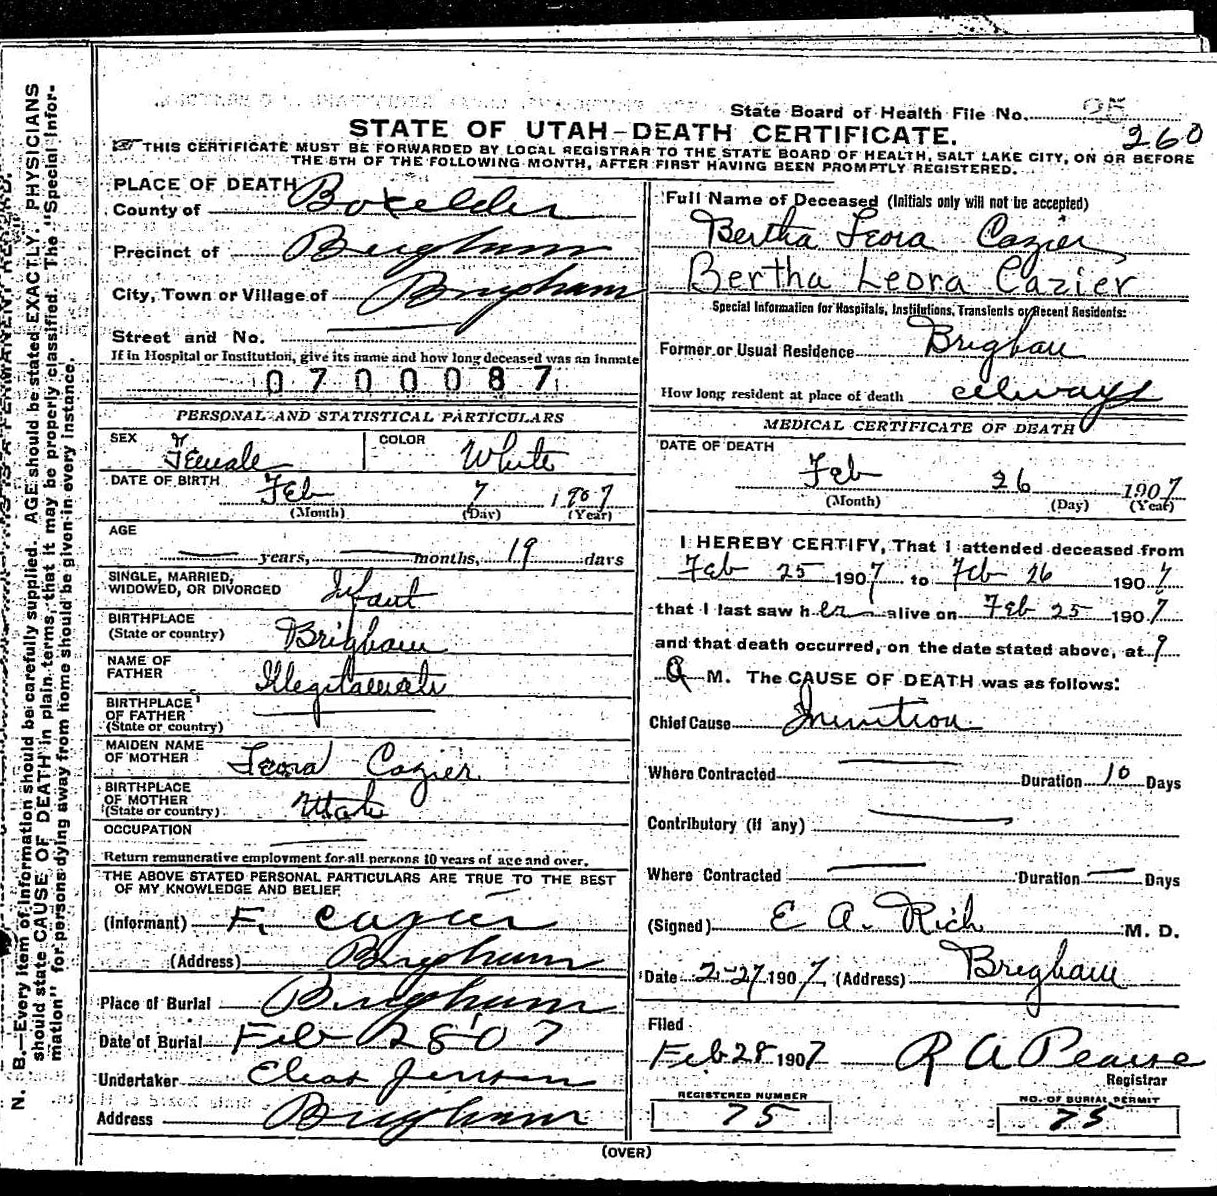 State Board of Health File No. 25
260
STATE OF UTAH-DEATH CERTIFICATE.
THIS CERTIFICATE MUST BE FORWARDED BY LOCAL REGISTRAR TO THE STATE BOARD OF HEALTH, SALT LAKE CITY, ON OR BEFORE
THE 5TH OF THE FOLLOWING MONTH, AFTER FIRST HAVING BEEN PROMPTLY REGISTERED.
PLACE OF DEATH
County of Boxelder
Precinct of Brigham
City, Town or Village of Brigham
Street and No.
If in Hospital or Institution, give its name and how long deceased was an inmate
0700087
PERSONAL AND STATISTICAL PARTICULARS
SEX Female COLOR White
DATE OF BIRTH Feb 7 1907
(Month) (Day) (Year)
AGE
years, months, 19 days
SINGLE, MARRIED,
WIDOWED, OR DIVORCED Infant
BIRTHPLACE
(State or country) Brigham
NAME OF
FATHER Illegitamate
BIRTHPLACE
OF FATHER
(State or country)
MAIDEN NAME
OF MOTHER Leora Cazier
BIRTHPLACE
OF MOTHER
(State or country) Utah
OCCUPATION
Return remunerative employment for all persons 10 years of age and over.
THE ABOVE STATED PERSONAL PARTICULARS ARE TRUE TO THE BEST
OF MY KNOWLEDGE AND BELIEF
(Informant) F. Cazier
(Address) Brigham
Place of Burial Brigham
Date of Burial Feb 28 07
Undertaker Elias Jensen
Address Brigham
Full Name of Deceased (Initials only will not be accepted)
Bertha Leora Cazier
Bertha Leora Cazier
Special Information for Hospitals, Institutions, Transients or Recent Residents:
Former or Usual Residence Brigham
How long resident at place of death always
MEDICAL CERTIFICATE OF DEATH
DATE OF DEATH
Feb 26 1907
(Month) (Day) (Year)
I HEREBY CERTIFY, That I attended deceased from
Feb 25 1907 to Feb 26 1907
that I last saw her alive on Feb 25 1907
and that death occurred, on the date stated above, at 9
A M. The CAUSE OF DEATH was as follows:
Chief Cause Inanition
Where Contracted Duration 10 Days
Contributory (if any)
Where Contracted Duration Days
(Signed) E A. Rich M. D.
Date 2-27 1907 (Address) Brigham
Filed
Feb 28 1907 R A Pearse
Registrar
REGISTERED NUMBER
75
NO. OF BURIAL PERMIT
75
(OVER)
N. B.—Every item of information should be carefully supplied. AGE should be stated EXACTLY. PHYSICIANS
should state CAUSE OF DEATH in plain terms, that it may be properly classified. The "Special Infor-
mation" for persons dying away from home should be given in every instance.